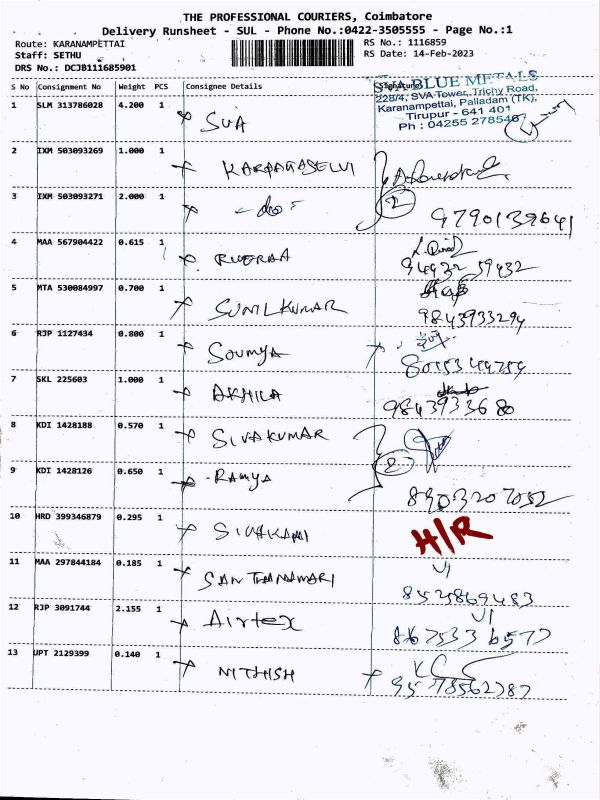 THE PROFESSIONAL COURIERS, Coimbatore
Delivery Runsheet - SUL - Phone No.:0422-3505555 - Page No.:1
Route: KARANAMPETTAI RS No.: 1116859
Staff: SETHU RS Date: 14-Feb-2023
DRS No.: DCJB111685901
S No Consignment No Weight PCS Consignee Details Signature
SVA BLUE METALS
228/4, SVA Tower, Trichy Road,
Karanampettai, Palladam (TK),
Tirupur - 641 401
Ph : 04255 278546
1 SLM 313786028 4.200 1 SVA
2 IXM 503093269 1.000 1 KARPAGASELVI
3 IXM 503093271 2.000 1 - do - 2 9790139641
4 MAA 567904422 0.615 1
94932 59432
5 MTA 530084997 0.700 1 SUNILKUMAR
9843933294
6 RJP 1127434 0.800 1 SOUMYA
7 SKL 225603 1.000 1 AKHILA
9843933680
8 KDI 1428188 0.570 1 SIVAKUMAR
9 KDI 1428126 0.650 1 RAMYA 2
8903207052
10 HRD 399346879 0.295 1 SIVAKAMI H/R
11 MAA 297844184 0.185 1 SANTHANAMARI
8525869483
12 RJP 3091744 2.155 1 Airtex
8675336577
13 UPT 2129399 0.140 1 NITHISH
9578562787